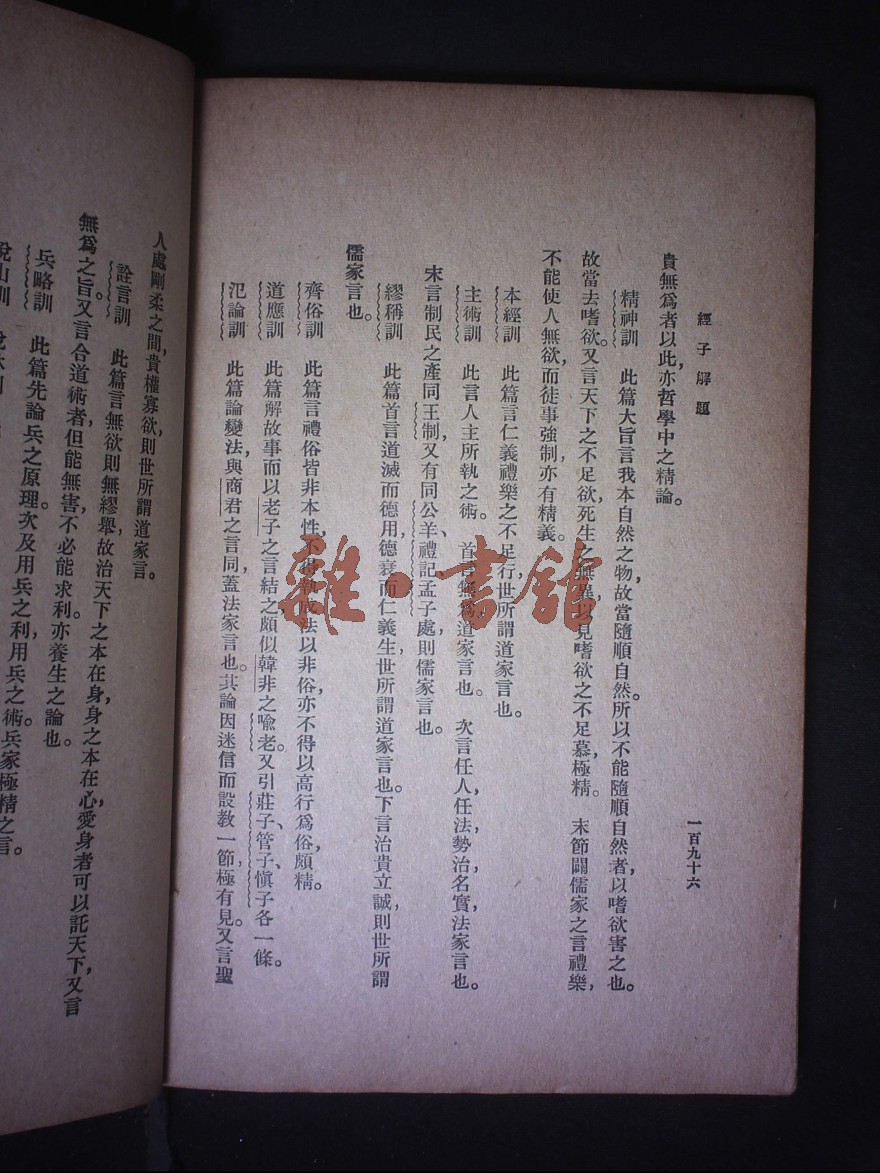 經子解題
一百九十六
貴無爲者以此,亦哲學中之精論。
精神訓 此篇大旨言我本自然之物,故當隨順自然。所以不能隨順自然者,以嗜欲害之也。
故當去嗜欲。又言天下之不足欲,死生之無異,以見嗜欲之不足慕,極精。 末節闢儒家之言禮樂,
不能使人無欲,而徒事強制,亦有精義。
本經訓 此篇言仁義禮樂之不足行,世所謂道家言也。
主術訓 此言人主所執之術。 首言無爲,道家言也。 次言任人,任法,勢治,名實,法家言也。
末言制民之產,同王制,又有同公羊、禮記、孟子處,則儒家言也。
繆稱訓 此篇首言道滅而德用,德衰而仁義生,世所謂道家言也。下言治貴立誠,則世所謂
儒家言也。
齊俗訓 此篇言禮俗皆非本性,不得執成法以非俗,亦不得以高行爲俗,頗精。
道應訓 此篇解故事而以老子之言結之,頗似韓非之喩老。又引莊子、管子、愼子各一條。
氾論訓 此篇論變法,與商君之言同,蓋法家言也。其論因迷信而設教一節,極有見。又言聖
人處剛柔之間,貴權寡欲,則世所謂道家言。
詮言訓 此篇言無欲則無繆舉,故治天下之本在身,身之本在心,愛身者可以託天下,又言
無爲之旨。又言合道術者,但能無害,不必能求利,亦養生之論也。
兵略訓 此篇先論兵之原理,次及用兵之利,用兵之術。兵家極精之言。
說山訓
雜·書館